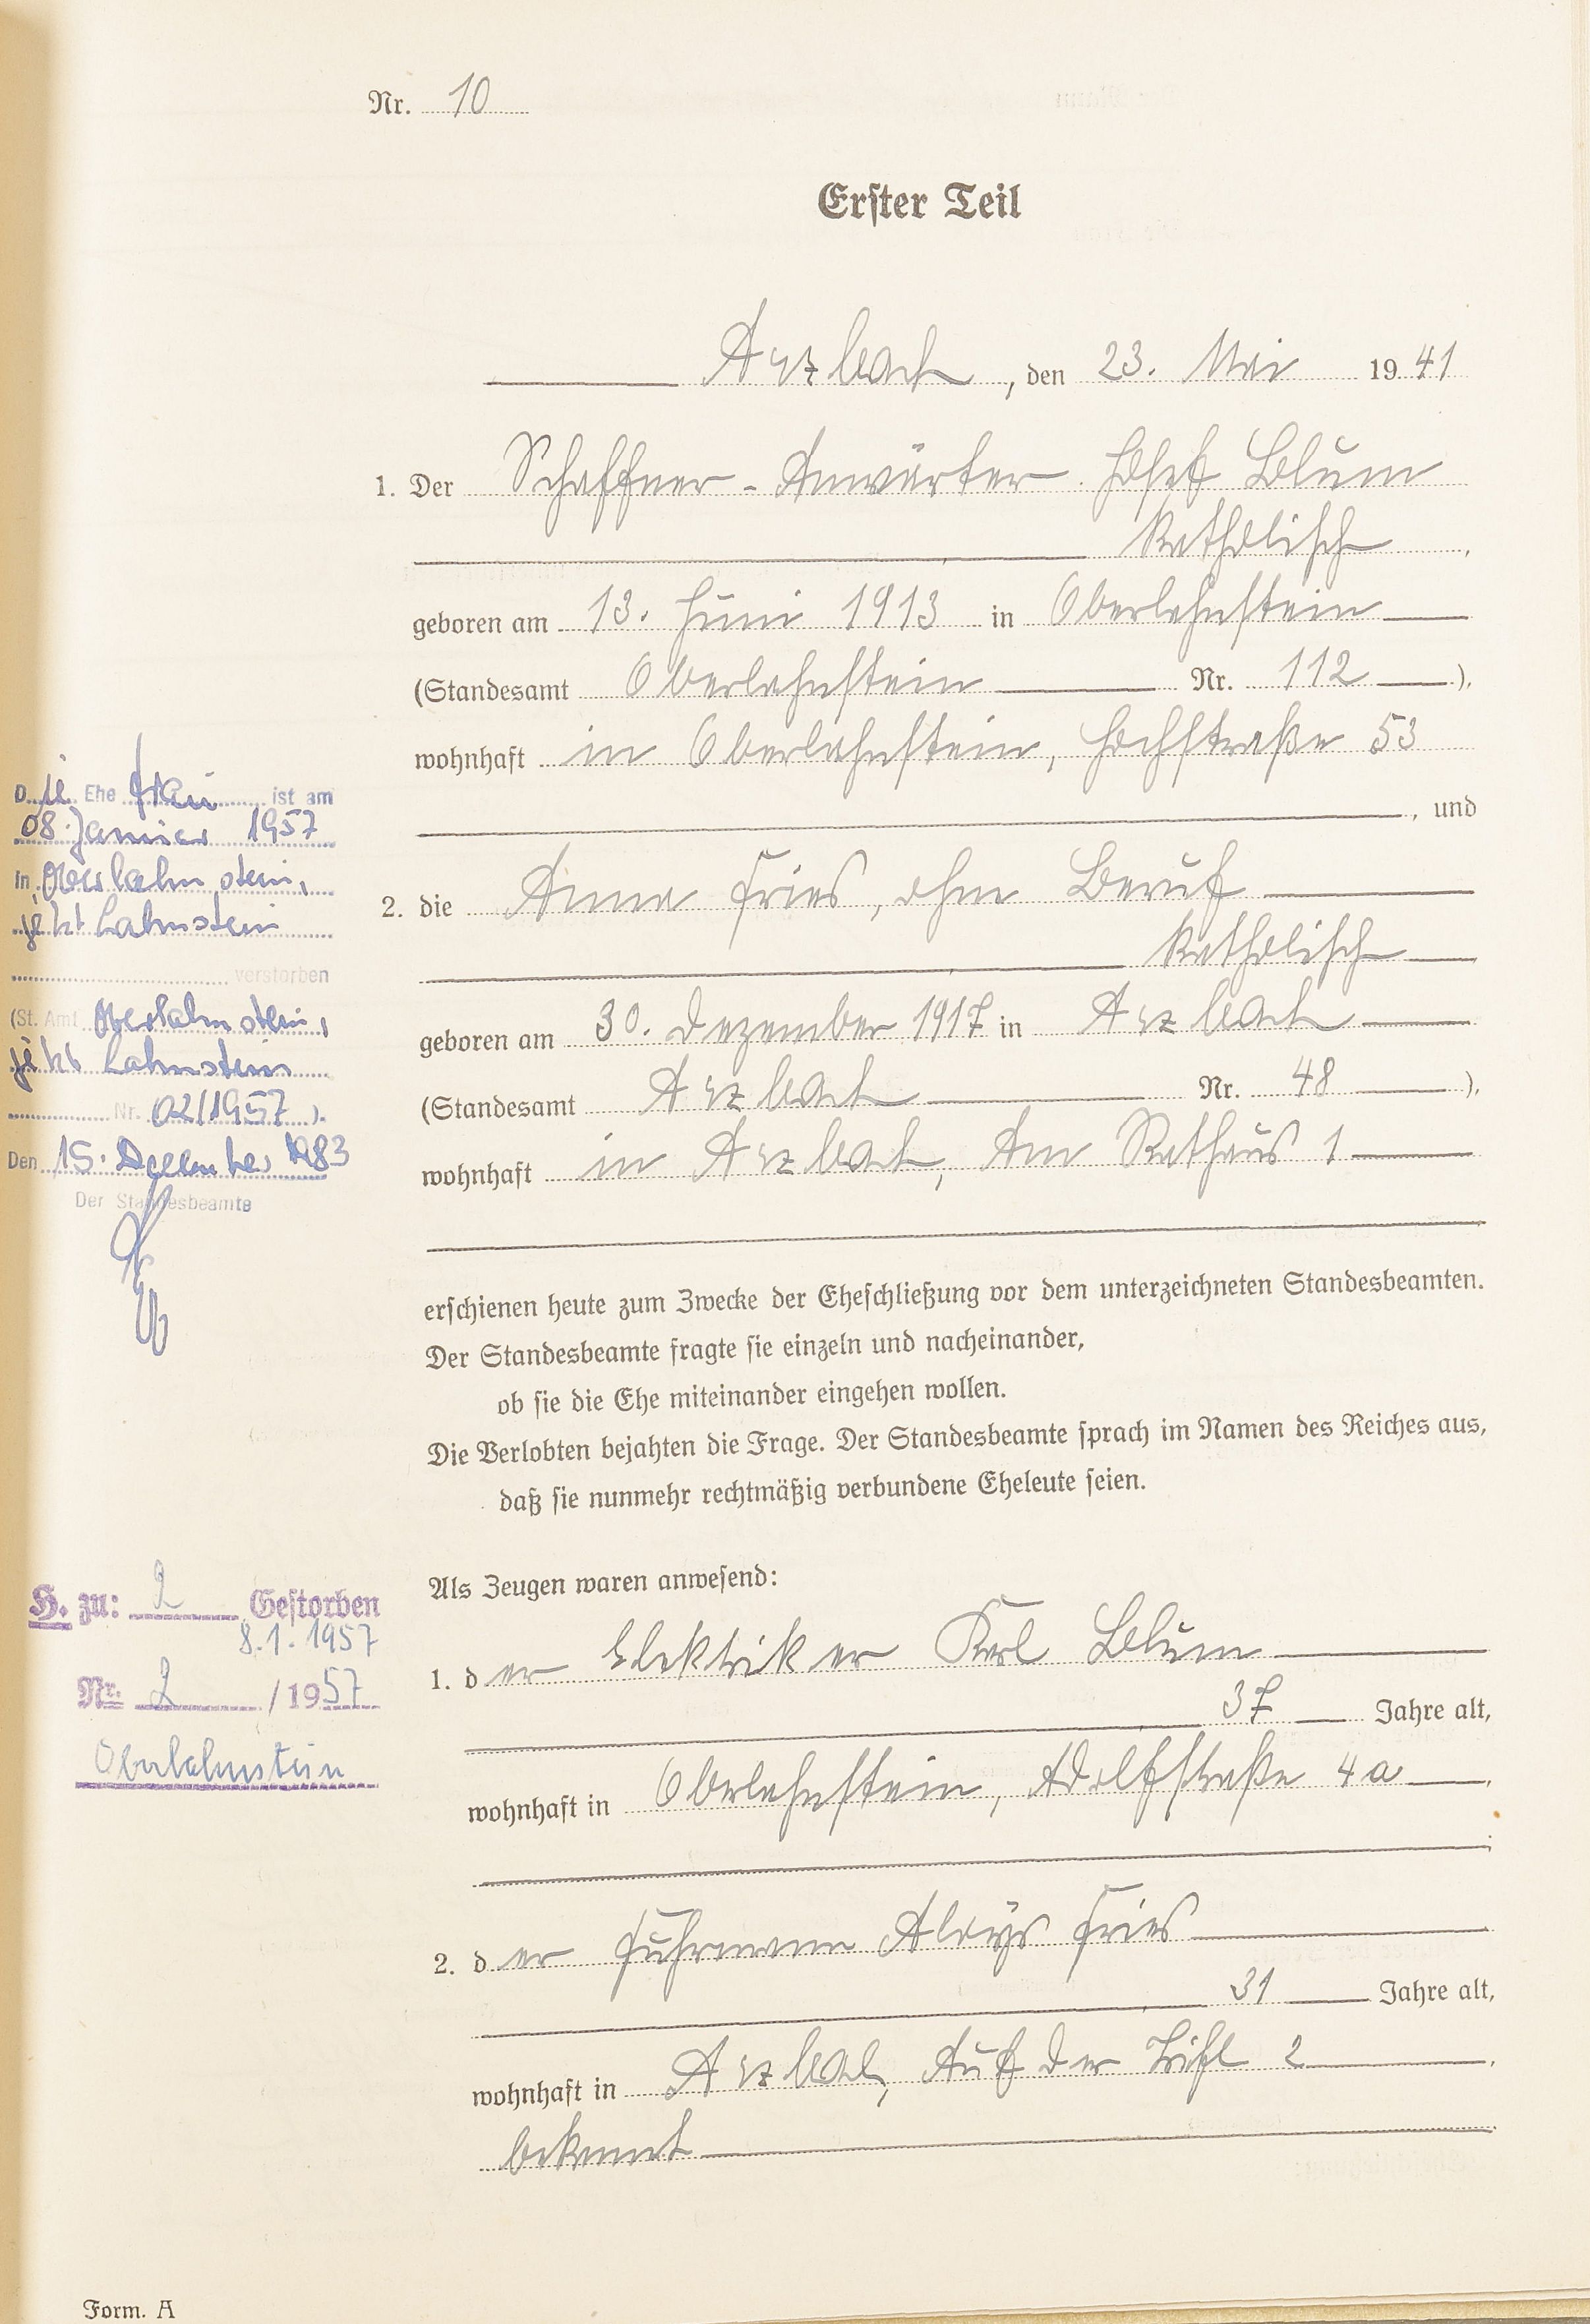 Nr. 10
Erster Teil
Arzbach, den 23. Mai 1941
1. Der Schaffner-Anwärter Josef Blum
katholisch,
geboren am 13. Juni 1913 in Oberlahnstein
(Standesamt Oberlahnstein Nr. 112),
wohnhaft in Oberlahnstein, Hochstraße 53
, und
2. die Anna Fries, ohne Beruf
katholisch,
geboren am 30. Dezember 1917 in Arzbach
(Standesamt Arzbach Nr. 48),
wohnhaft in Arzbach, Am Rathaus 1
erschienen heute zum Zwecke der Eheschließung vor dem unterzeichneten Standesbeamten.
Der Standesbeamte fragte sie einzeln und nacheinander,
ob sie die Ehe miteinander eingehen wollen.
Die Verlobten bejahten die Frage. Der Standesbeamte sprach im Namen des Reiches aus,
daß sie nunmehr rechtmäßig verbundene Eheleute seien.
Als Zeugen waren anwesend:
1. der Elektriker Karl Blum
37 Jahre alt,
wohnhaft in Oberlahnstein, Adolfstraße 4a,
2. der Fuhrmann Aloys Fries
31 Jahre alt,
wohnhaft in Arzbach, Auf der 2,
bekannt
Die Ehefrau ist am
08. Januar 1957
in Oberlahnstein,
jetzt Lahnstein
verstorben
(St. Amt Oberlahnstein,
jetzt Lahnstein
Nr. 02/1957).
Den 15. Dezember 1983
Der Standesbeamte
H. zu: 2 Gestorben
8.1.1957
Nr. 2 /1957
Oberlahnstein
Form. A